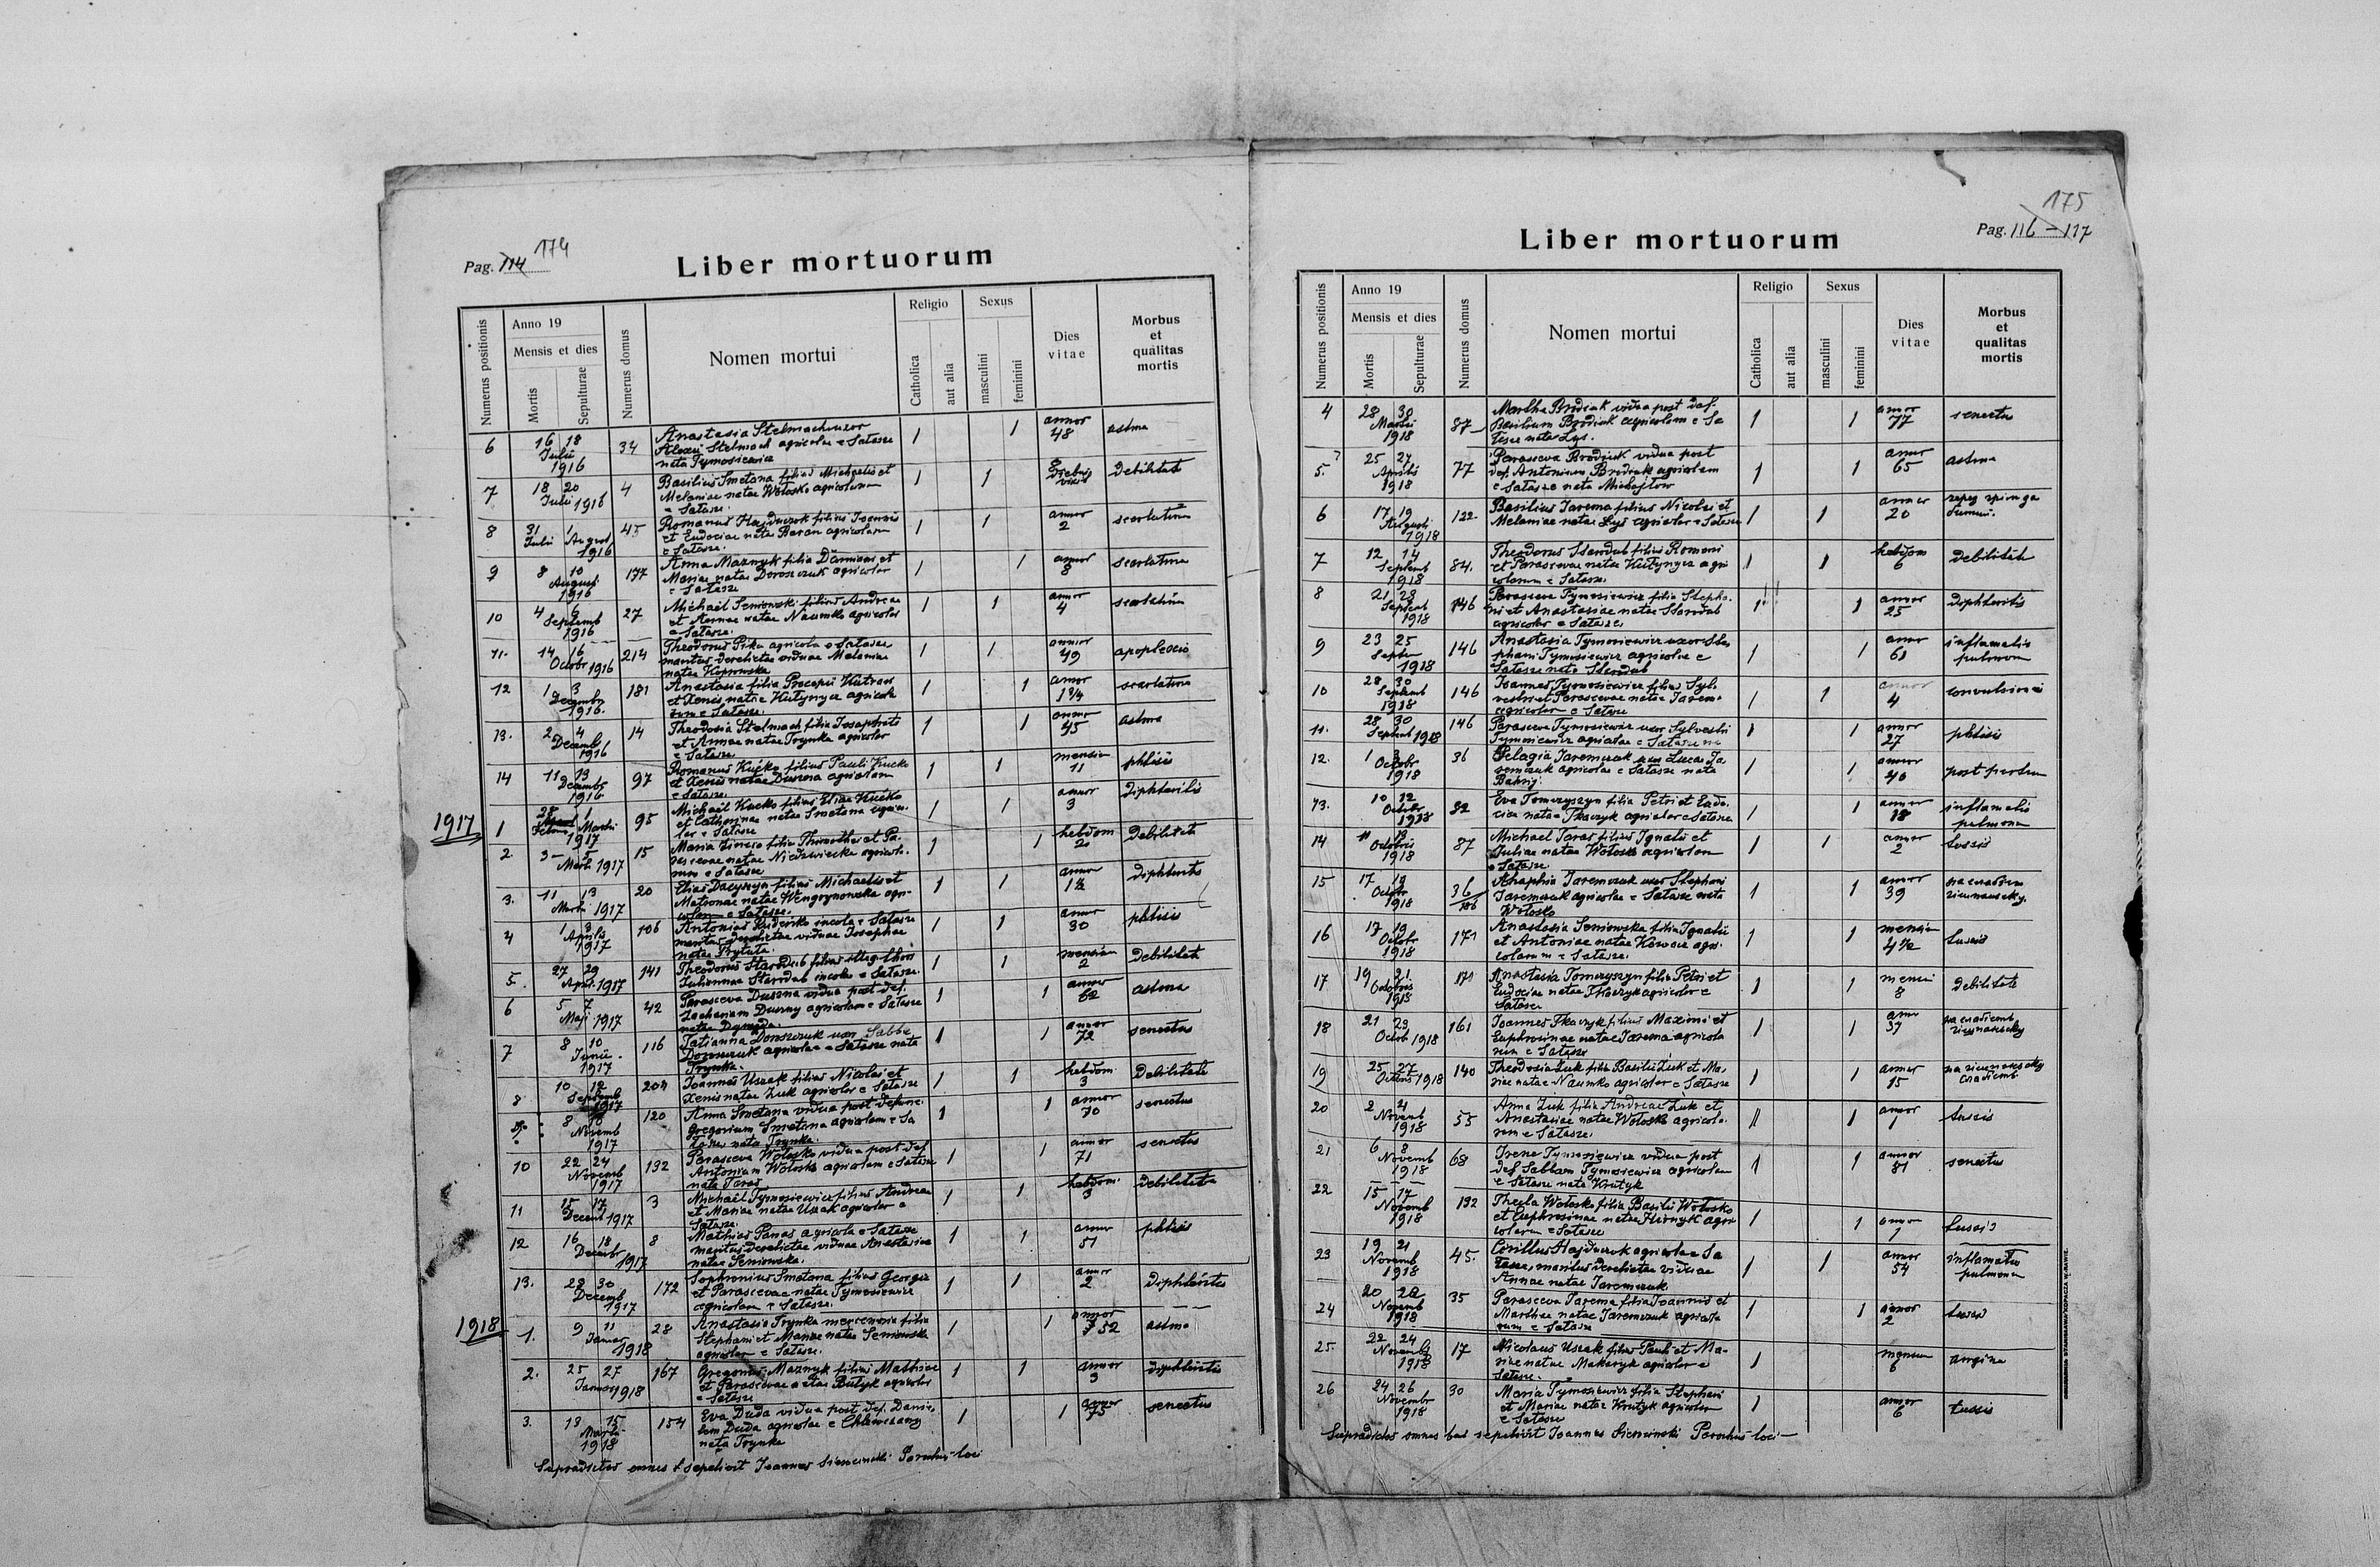 174
Pag. 114
Liber mortuorum
Numerus positionis
Anno 19
Mensis et dies
Mortis
Sepulturae
Numerus domus
Nomen mortui
Religio
Catholica
aut alia
Sexus
masculini
feminini
Dies
vitae
Morbus
et
qualitas
mortis
6 16 18 34 Anastasia Stelmach uxor 1 1 annor astma
Julii Alexii Stelmach agricolae e Satasze 48
1916 nata Tymosiewicz
7 18 20 4 Basilius Smetana filius Michaelis et 1 1 debilitate
Julii 1916 Melaniae natae Wołosko agricolarum
e Satasze.
8 31 1 45 Romanus Hajduczok filius Joannis 1 1 annor scarlatina
Julii August et Eudociae natae Baran agricolarum 2
1916 e Satasze.
9 8 10 177 Anna Maznyk filia Damiani et 1 1 annor scarlatina
August Mariae natae Doroszczuk agricolar 8
1916 e Satasze
10 4 6 27 Michaël Seniowski filius Andreae 1 1 annor scarlatina
Septemb et Annae natae Naumko agricolar 4
1916 e Satasze.
11. 14 16 214 Theodorus Pika agricola e Satasze 1 1 annor apoplexis
Octobr 1916 maritus derelictae viduae Melaniae 49
natae
12 1 3 181 Anastasia filia Procopii 1 1 annor scarlatina
Decembr et Xeniae natae Kutynycz agricola 1 3/4
1916. rum e Satasze.
13. 2 4 14 Theodosia Stelmach filia Josaphati 1 1 annor astma
Decemb et Annae natae Trynka agricolar 45
1916 e Satasze
14 11 13 97 Romanus Kućko filius Pauli Kućko 1 1 mensium phtisis
Decembr et Xeniae natae Duszna agricolarum 11
1916 e Satasze.
1917 1 28 1 95 Michaël Kućko filius Eliae Kućko 1 1 annor diphteritis
Martii et Catharinae natae Smetana agrico- 3
1917 lar e Satasze
2 3 5 15 Maria filia Thimothei et Pa- 1 1 hebdom debilitate
Marti 1917 rascevae natae Niedzwiecka agricola- 2
rum e Satasze
3. 11 13 20 Elias Daczyszyn filius Michaelis et 1 1 annor diphteritis
Martii 1917 Matronae natae Wengrynowska agri- 1 1/2
colarum e Satasze.
4 1 3 106 Antonius Rudeńko incola e Satasze 1 1 annor phtisis
Aprilis maritus derelictae viduae Josephae 30
1917 natae Prytuła
5. 27 29 141 Theodorus Starodub filius 1 1 mensium debilitate
April 1917 Julianna Starodub incolae e Satasze 2
6 5 7 42 Parasceva Duszna vidua post def. 1 1 annor astma
Maji 1917 Zachariam Duszny agricolam e Satasze 62
nata
7 8 10 116 Tatianna Doroszczuk uxor Sabbae 1 1 annor senectus
Junii Doroszczuk agricolae e Satasze nata 72
1917 Trynka.
8 10 12 204 Joannes Uszak filius Nicolai et 1 1 hebdom debilitate
Septemb Xeniae natae Żuk agricolar e Satasze 3
1917
9. 8 10 120 Anna Smetana vidua post defunc. 1 1 annor senectus
Novemb Gregorium Smetana agricolam e Sa 70
1917 tasze nata Trynka.
10 22 24 132 Parasceva Wołosko vidua post def 1 1 annor senectus
Novemb Antonium Wołosko agricolam e Satasze 71
1917 nata Taras
11 15 17 3 Michaël Tymosiewicz filius Andreae 1 1 hebdom. debilitate
Decemb 1917 et Mariae natae Uszak agricolar e 3
Satasze.
12 16 18 8 Mathias Panas agricola e Satasze 1 1 annor phtisis
Decembr maritus derelictae viduae Anastasiae 51
1917 natae Seniowska.
13. 28 30 172 Sophronius Smetana filius Georgii 1 1 annor diphteritis
Decemb et Parascevae natae Tymosiewicz 2
1917 agricolarum e Satasze.
1918 1. 9 11 28 Anastasia Trynka mercenaria filia 1 1 annor astma
Januar Stephani et Mariae natae Seniowska 52
1918 agricolar e Satasze.
2. 25 27 167 Gregorius Maznyk filius Mathiae 1 1 annor diphteritis
Januar 1918 et Parascevae natae Butyk agricolar 3
e Satasze
3. 13 15 154 Eva Duda vidua post def. Danie- 1 1 annor senectus
Martii lem Duda agricolae e Chlewczany 75
1918 nata Trynka
Supradictos omnes sepelivit Joannes Sieneński Parochus loci
175
Pag. 116 – 117
Liber mortuorum
Numerus positionis
Anno 19
Mensis et dies
Mortis
Sepulturae
Numerus domus
Nomen mortui
Religio
Catholica
aut alia
Sexus
masculini
feminini
Dies
vitae
Morbus
et
qualitas
mortis
4 28 30 87 Martha Brodiuk vidua post def. 1 1 annor senectus
Martii Basilium Brodiuk agricolam e Sa 77
1918 tasze nata Lys.
5. 25 27 77 Parasceva Brodiuk vidua post 1 1 annor astma
Aprilis def. Antonium Brodiuk agricolam 65
1918 e Satasze nata Michajlow
6 17 19 122 Basilius Jarema filius Nicolai et 1 1 annor
Augusti Melaniae natae Lyś agricolar e Satasze 20
1918
7 12 14 84. Theodorus Starodub filius Romani 1 1 hebdom debilitate
Septemb et Parascevae natae Kutynycz agri 6
1918 colarum e Satasze.
8 21 23 146 Parasceva Tymosiewicz filia Stepha- 1 1 annor diphteritis
Septemb ni et Anastasiae natae Starodub 25
1918 agricolar e Satasze.
9 23 25 146 Anastasia Tymosiewicz uxor Ste 1 1 annor inflamatio
Septem phani Tymosiewicz agricolae e 61 pulmonum
1918 Satasze nata Starodub
10 28 30 146 Joannes Tymosiewicz filius Syl- 1 1 annor convulsiones
Septemb vestri et Parascevae natae Jarem 4
1918 agricolar e Satasze
11. 28 30 146 Parasceva Tymosiewicz uxor Sylvestri 1 1 annor phtisis
Septemb 1918 Tymosiewicz agricolae e Satasze na 27
12. 1 3 36 Pelagia Jaremczuk uxor Lucae Ja 1 1 annor post partum
Octobr remczuk agricolae e Satasze nata 40
1918 Bahrij
13. 10 12 82 Eva Tomczyszyn filia Petri et Eudo- 1 1 annor inflamatio
Octobr ciae natae Tkaczyk agricolar e Satasze 18 pulmonum
1918
14 11 13 87 Michael Taras filius Ignatii et 1 1 annor tussis
Octobris Juliae natae Wołosko agricolarum 2
1918 e Satasze.
15 17 19 36/186 Ahaphia Jaremczuk uxor Stephani 1 1 annor
Octobr Jaremczuk agricolae e Satasze nata 39
1918 Wołosko
16 17 19 171 Anastasia Seniowska filia Ignatii 1 1 mensium tussis
Octobr et Antoniae natae Kowacz agri- 4 1/2
1918 colarum e Satasze.
17 19 21 171 Anastasia Tomczyszyn filia Petri et 1 1 mensium debilitate
Octobris Eudociae natae Tkaczyk agricolar e 8
1918 Satasze
18 21 23 161 Joannes Tkaczyk filius Maximi et 1 1 annor
Octob 1918 Euphrosinae natae Jarema agricola 37
rum e Satasze
19 25 27 140 Theodosia Żuk filia Basilii Żuk et Ma- 1 1 annor
Octobris 1918 riae natae Naumko agricolar e Satasze 15
20 2 4 55 Anna Żuk filia Andreae Żuk et 1 1 annor tussis
Novemb Anastasiae natae Wołosko agricola- 1
1918 rum e Satasze.
21 6 8 68 Irene Tymosiewicz vidua post 1 1 annor senectus
Novemb def. Sabbam Tymosiewicz agricolam 81
1918 e Satasze nata Krutyk
22 15 17 132 Thecla Wołosko filia Basilii Wołosko 1 1 annor tussis
Novemb et Euphrosinae natae Hirnyk agri 1
1918 colarum e Satasze
23 19 21 45. Cirillus Hajduczok agricola e Sa 1 1 annor inflamatio
Novemb tasze, maritus derelictae viduae 54 pulmonum
1918 Annae natae Jaremczuk
24 20 22 35 Parasceva Jarema filia Joannis et 1 1 annor tussis
Novemb Marthae natae Jaremczuk agricola 2
1918 rum e Satasze
25. 22 24 17 Nicolaus Uszak filius Pauli et Ma- 1 mensium angina
Novemb riae natae Makaryk agricolar e 8
1918 Satasze.
26 24 26 30 Maria Tymosiewicz filia Stephani 1 annor tussis
Novembr et Mariae natae Krutyk agricolarum 6
1918 e Satasze
Supradictos omnes sepelivit Joannes Sieneński Parochus loci